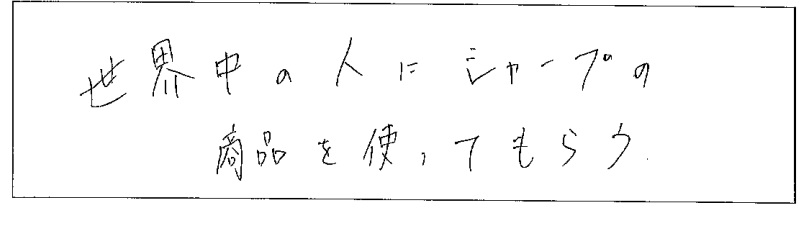 世界中の人にシャープの
商品を使ってもらう.